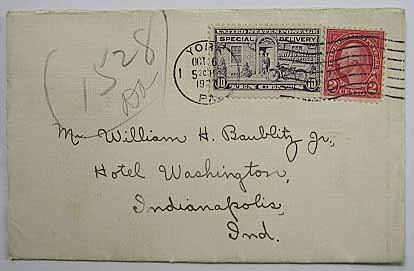 1528
UNITED STATES POSTAGE
SPECIAL DELIVERY
10 10
2 CENTS 2
YORK
OCT 26
PA
Mr William H. Baublitz Jr,
Hotel Washington,
Indianapolis,
Ind.